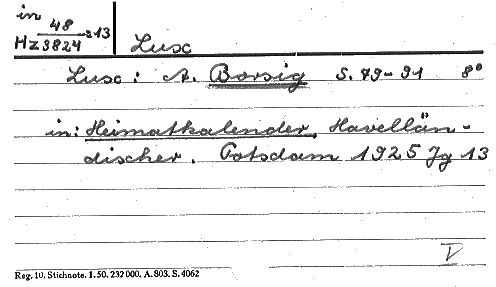 in
48
Hz 3824 :13
Lux
Lux: A. Borsig S. 79-91 8°
in: Heimatkalender, Havellän-
discher. Potsdam 1925 Jg 13
V
Reg. 10. Stichnote. 1. 50. 232000. A. 803. S. 4062